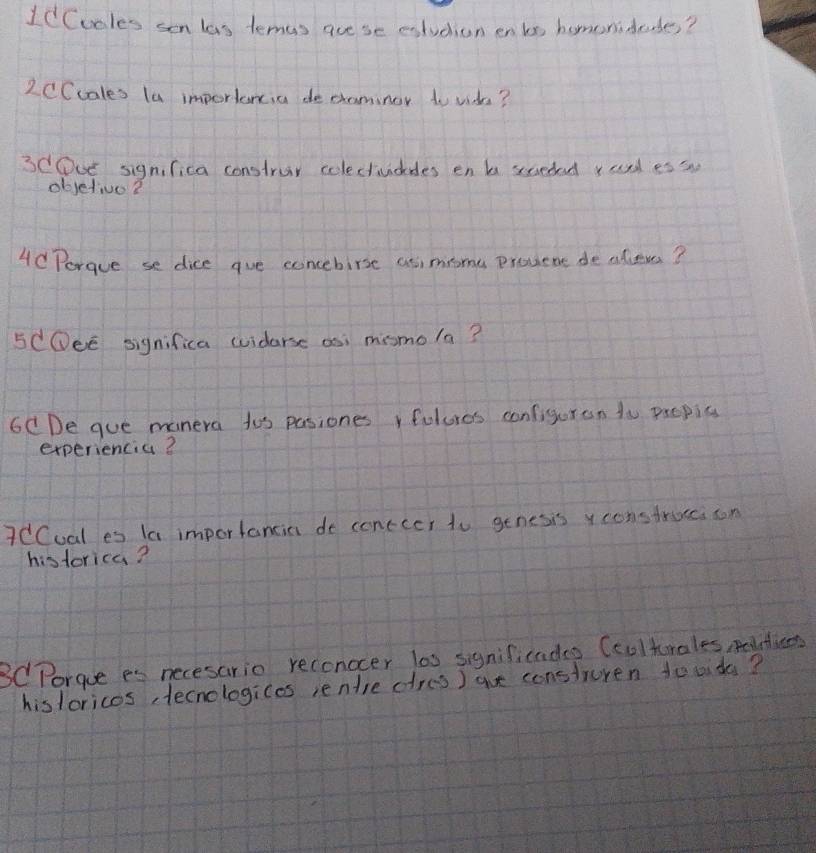 1¿Cuales son las temas que se estudian en las homanidades?
2¿Cuales la importancia de examinar tu vida?
3¿Qué significa construir colectividades en la sociedad y cual es su
objetivo?
4¿Porque se dice que concebirse asi misma proviene de afuera?
5¿Qeé significa cuidarse asi mismo/a?
6¿De que manera tus pasiones y futuros configuran tu propia
experiencia?
7¿Cual es la importancia de conocer tu genesis y construccion
historica?
8¿Porque es necesario reconocer los significados (culturales, politicos
historicos, tecnologicos, entre otros) que construyen tu vida?